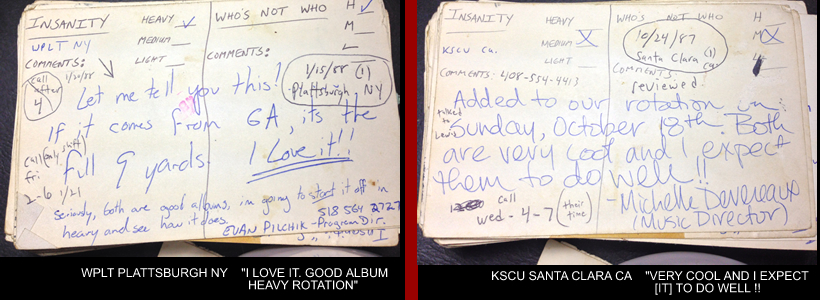 INSANITY
HEAVY ✓
WHO'S NOT WHO
H ✓
WPLT NY
MEDIUM
M
LIGHT
L
COMMENTS:
COMMENTS:
call after 4
1/20/88
1/15/88 (1)
Plattsburgh, NY
Let me tell you this!
If it comes from GA, its the
full 9 yards. I Love it!!
call
fri
2-6 1/21
Seriously, both are good albums, im going to start it off in
heavy and see how it does.
518 564 2727
EVAN PILCHIK - Program Dir.
INSANITY
HEAVY
WHO'S NOT WHO
H
KSCU Ca.
MEDIUM X
M X
LIGHT
10/24/87
Santa Clara (1)
Ca.
COMMENTS: 408-554-4413
COMMENTS:
reviewed
Added to our rotation on
talked to Lewis
Sunday, October 18th. Both
are very cool and I expect
them to do well!!
call
wed - 4-7 (their time)
-Michelle Devereaux
(Music Director)
WPLT PLATTSBURGH NY "I LOVE IT. GOOD ALBUM
HEAVY ROTATION"
KSCU SANTA CLARA CA "VERY COOL AND I EXPECT
[IT] TO DO WELL !!